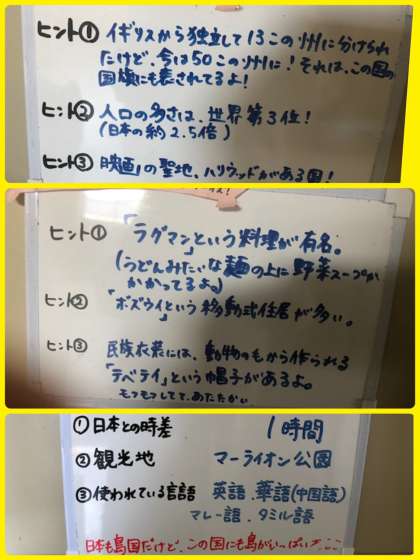 ヒント① イギリスから独立して13この州に分けられ
たけど、今は50この州に！それは、この国の
国旗にも表されてるよ！
ヒント② 人口の多さは、世界第3位！
(日本の約2.5倍)
ヒント③ 映画の聖地、ハリウッドがある国！
ヒント① 「ラグマン」という料理が有名。
(うどんみたいな麺の上に野菜スープが
かかってるよ)
ヒント② 「ボズウイ」という移動式住居が多い。
ヒント③ 民族衣装には、動物のもから作られる
「テベテイ」という帽子があるよ。
もフもフしてて、あたたかい
①日本との時差 1時間
②観光地 マーライオン公園
③使われている言語 英語、華語(中国語)
マレー語、タミル語
日本も島国だけど、この国にも島がいっぱい